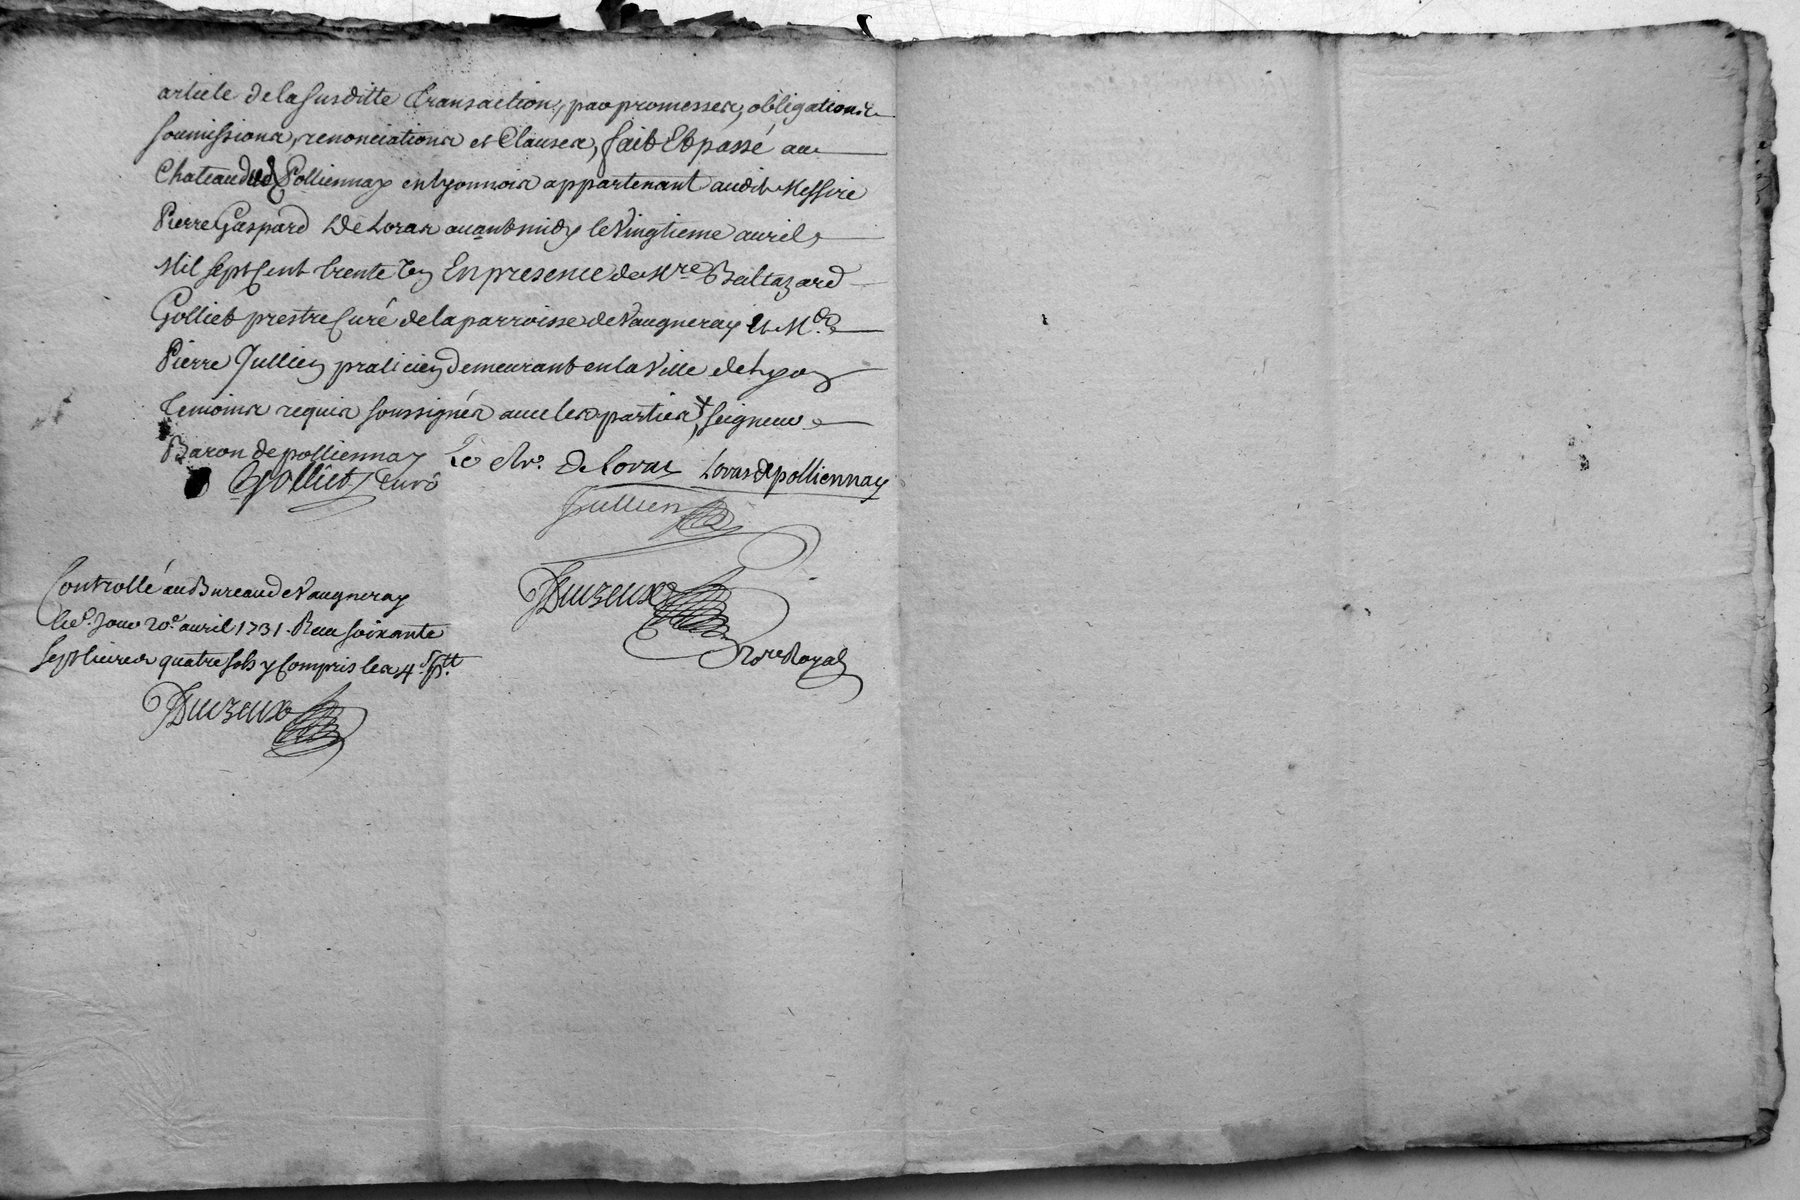 article de la susditte transaction, par promesses, obligations
soumissions, renonciations et Clauses, fait Et passé au
Chateau de Polliennay en Lyonnois appartenant audit Messire
Pierre Gaspard De Loras avant midy le Vingtieme avril
Mil sept Cent trente Un En presence de Mre Baltazard
Golliet prestre Curé de la parroisse de Vaugneray Et Me
Pierre Jullien praticien demeurant en la Ville de Lyon
temoins requis soussignés avec les parties + seigneur
Baron de polliennay Le chr. De Loras Loras de polliennay
Golliet Curé
Jullien
Controllé au Bureau de Vaugneray
Ce jour 20e avril 1731. Receu soixante
sept livres quatre sols y Compris les 4s p tt.
Duzeux
Nore Royal
Duzeux